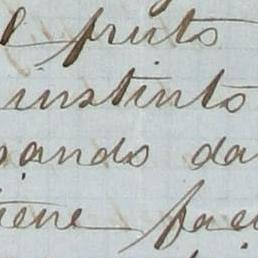 l fruto
instinto
pando da
tiene fac